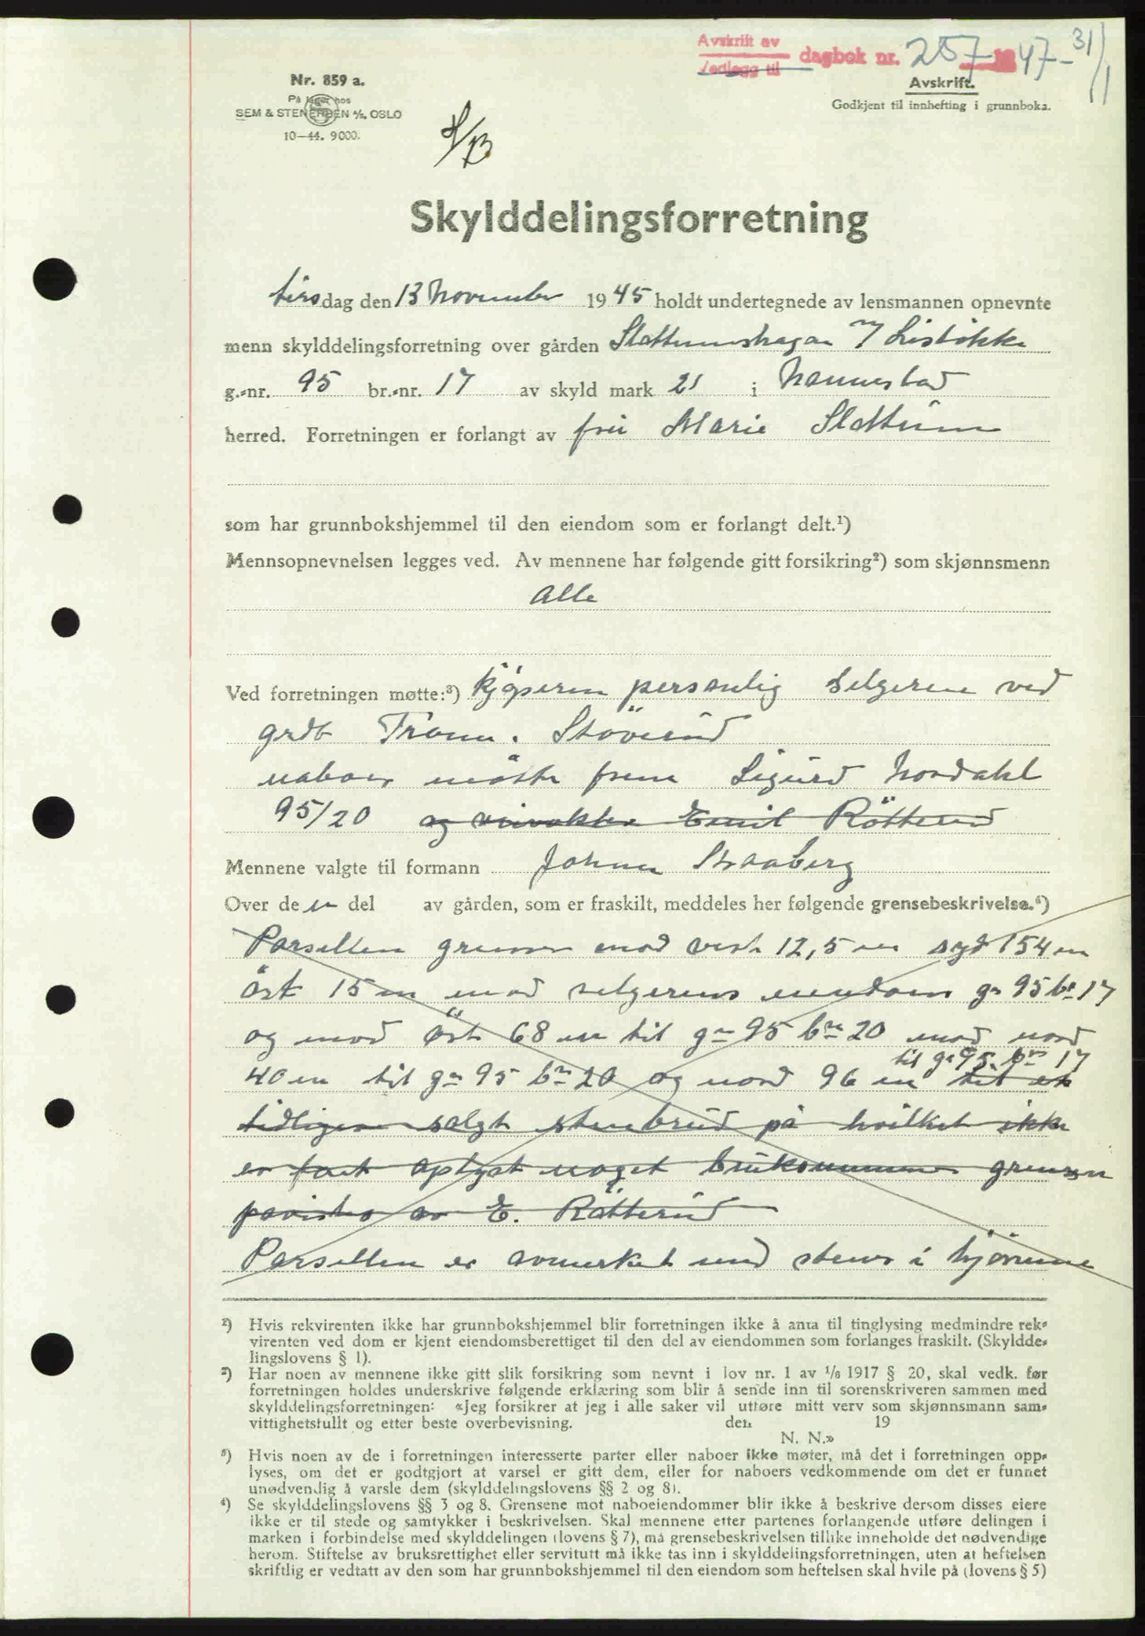 Avskrift av
Vedlegg til dagbok nr. 257 1947-31/1
Nr. 859 a.
På lager hos
SEM & STENERSEN A/S, OSLO
10-44. 9000.
Avskrift.
Godkjent til innhefting i grunnboka.
Skylddelingsforretning
tirsdag den 13 November 1945 holdt undertegnede av lensmannen opnevnte
menn skylddelingsforretning over gården Slattumshagan m/ Lisløkka
g.-nr. 95 br.-nr. 17 av skyld mark 21 i Nannestad
herred. Forretningen er forlangt av frú Marie Slattúm
som har grunnbokshjemmel til den eiendom som er forlangt delt.¹)
Mennsopnevnelsen legges ved. Av mennene har følgende gitt forsikring²) som skjønnsmenn
Alle
Ved forretningen møtte:³) kjøperen personlig selgeren ved
grdb Tramm. Stöverúd
naboer møtte frem Sigúrd Nordahl
95/20 og Emil Rötterud
Mennene valgte til formann Johan Straaberg
Over de en del av gården, som er fraskilt, meddeles her følgende grensebeskrivelse.⁴)
Parsellen grenser mod vest 12,5 m syd 154 m
öst 15 m mod selgerens eiendom gn 95 bn 17
og mod öst 68 m til gn 95 bn 20 mod nord
til gn 95 bn 17
40 m til gn 95 bn 20 og nord 96 m til et
tidligere solgt stenbrúd på hvilket ikke
er fart oplyst noget brúksnummer grensen
påvist av E. Rötterúd
Parsellen er avmerket med stener i hjørnene
¹) Hvis rekvirenten ikke har grunnbokshjemmel blir forretningen ikke å anta til tinglysing medmindre rek-
virenten ved dom er kjent eiendomsberettiget til den del av eiendommen som forlanges fraskilt. (Skyldde-
lingslovens § 1).
²) Har noen av mennene ikke gitt slik forsikring som nevnt i lov nr. 1 av 1/6 1917 § 20, skal vedk. før
forretningen holdes underskrive følgende erklæring som blir å sende inn til sorenskriveren sammen med
skylddelingsforretningen: «Jeg forsikrer at jeg i alle saker vil utføre mitt verv som skjønnsmann sam-
vittighetsfullt og etter beste overbevisning. den 19
N. N.»
³) Hvis noen av de i forretningen interesserte parter eller naboer ikke møter, må det i forretningen opp-
lyses, om det er godtgjort at varsel er gitt dem, eller for naboers vedkommende om det er funnet
unødvendig å varsle dem (skylddelingslovens §§ 2 og 8).
⁴) Se skylddelingslovens §§ 3 og 8. Grensene mot naboeiendommer blir ikke å beskrive dersom disses eiere
ikke er til stede og samtykker i beskrivelsen. Skal mennene etter partenes forlangende utføre delingen i
marken i forbindelse med skylddelingen (lovens § 7), må grensebeskrivelsen tillike inneholde det nødvendige
herom. Stiftelse av bruksrettighet eller servitutt må ikke tas inn i skylddelingsforretningen, uten at heftelsen
skriftlig er vedtatt av den som har grunnbokshjemmel til den eiendom som heftelsen skal hvile på (lovens § 5)